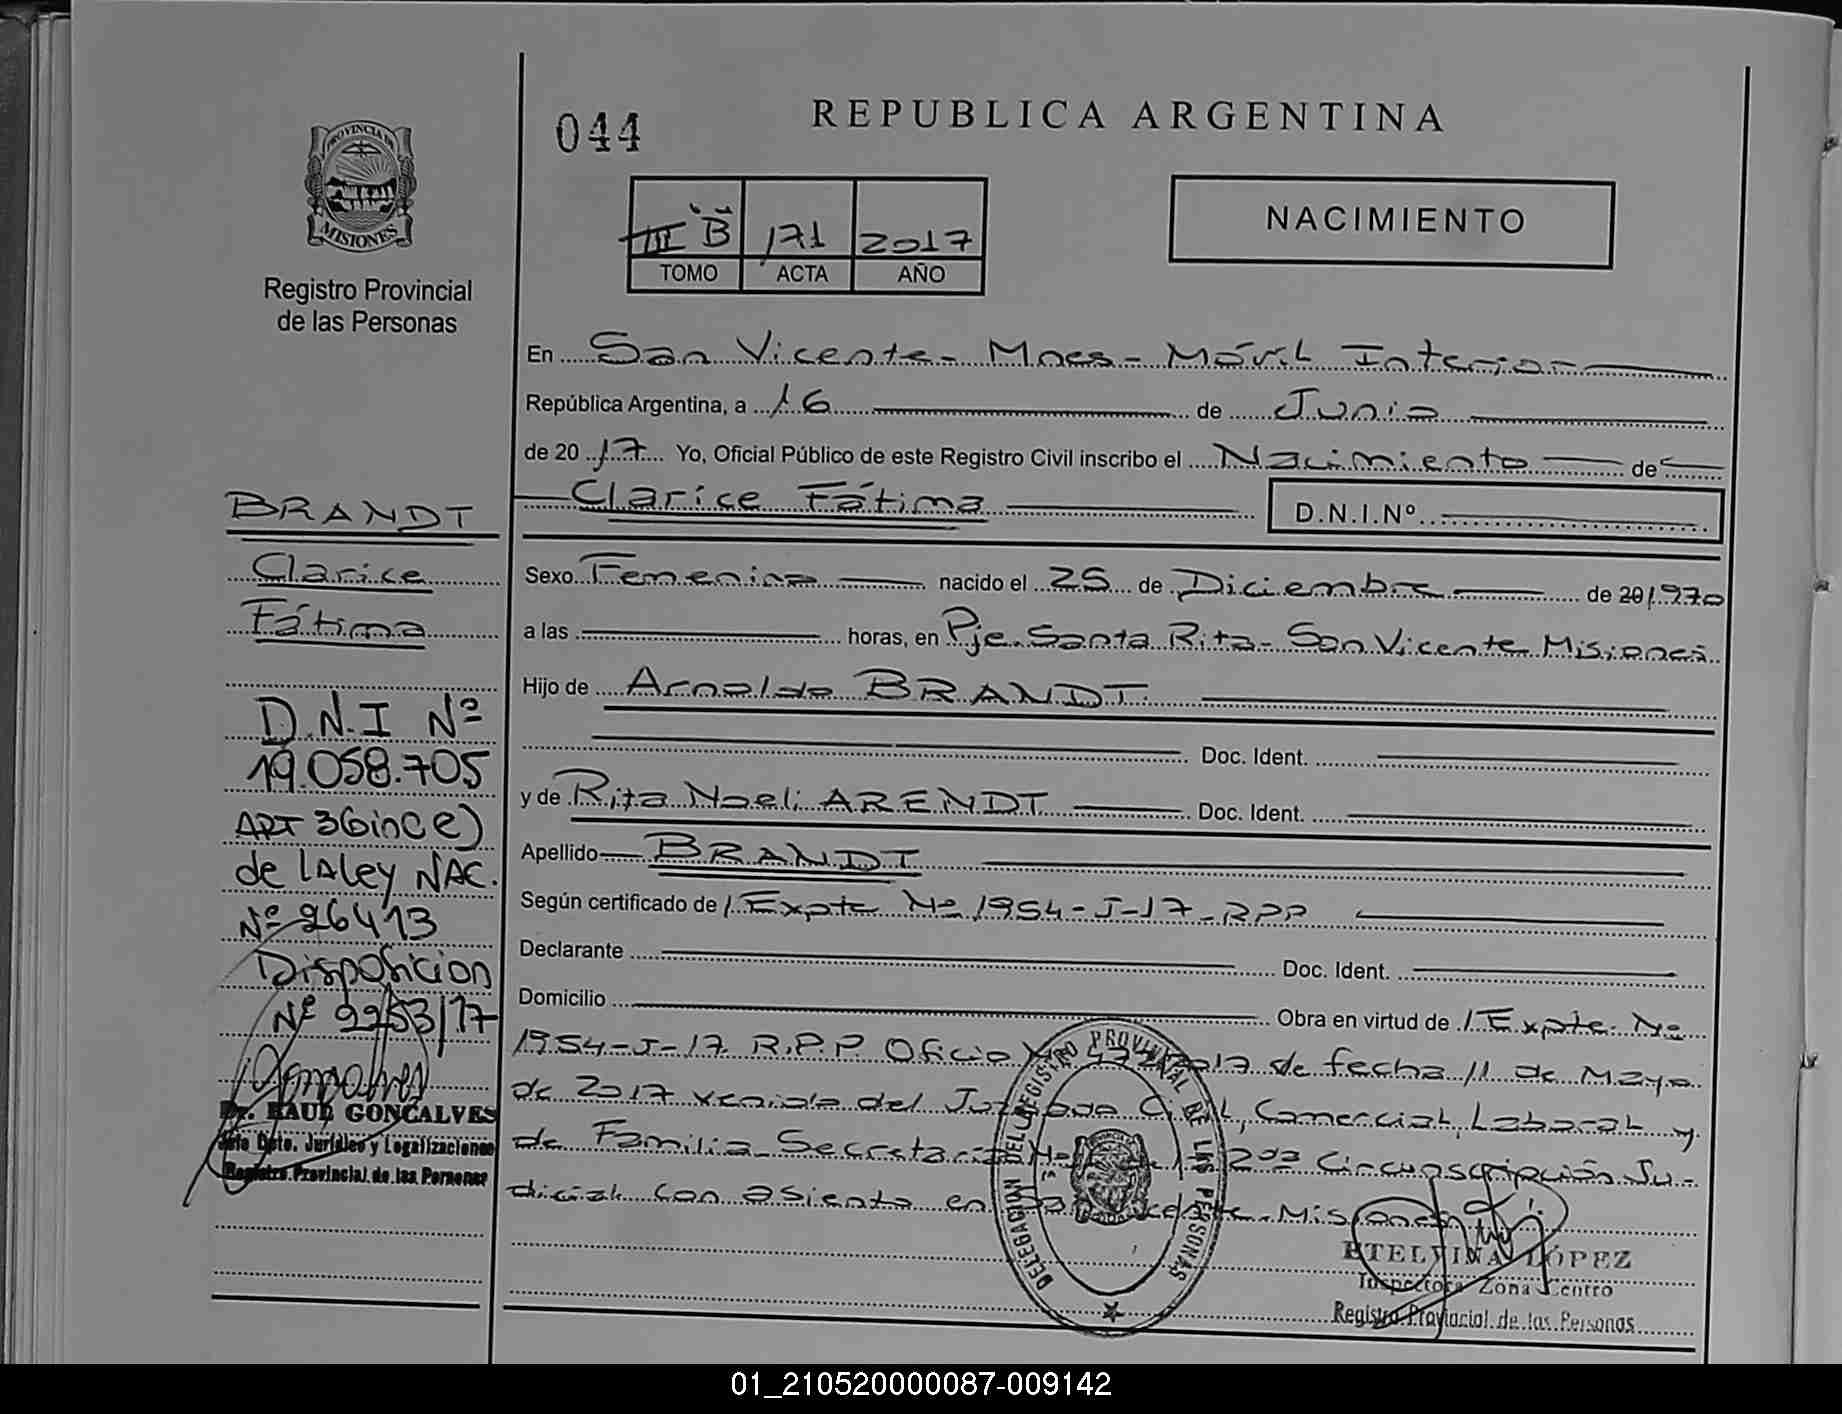 044
REPUBLICA ARGENTINA
PROVINCIA DE
MISIONES
Registro Provincial
de las Personas
III "B" 171 2017
TOMO ACTA AÑO
NACIMIENTO
En San Vicente - Mnes - Móvil Interior
República Argentina, a 16 de Junio
de 2017 Yo, Oficial Público de este Registro Civil inscribo el Nacimiento de
Clarice Fátima
D.N.I.Nº
Sexo Femenino nacido el 25 de Diciembre de 20 1970
a las horas, en Pje. Santa Rita - San Vicente Misiones
Hijo de Arnaldo BRANDT
Doc. Ident.
y de Rita Noeli ARENDT Doc. Ident.
Apellido BRANDT
Según certificado de / Expte Nº 1954-J-17-RPP
Declarante Doc. Ident.
Domicilio Obra en virtud de / Expte. Nº
1954-J-17 R.P.P Oficio de fecha 11 de Mayo
de 2017 venida del Juzgado Civil, Comercial, Laboral y
de Familia Secretaria 2da Circunscripción Ju-
dicial con asiento en Misiones
DELEGACION DEL REGISTRO PROVINCIAL DE LAS PERSONAS
ETELVINA LÓPEZ
Inspectora Zona Centro
Registro Provincial de las Personas
BRANDT
Clarice
Fátima
D.N.I Nº
19.058.705
ART 36 inc e)
de lA ley NAC.
Nº 26413
Disposicion
Nº 2253/17
Dr. RAUL GONCALVES
Jefe Dpto. Jurídico y Legalizaciones
Registro Provincial de las Personas
01_210520000087-009142